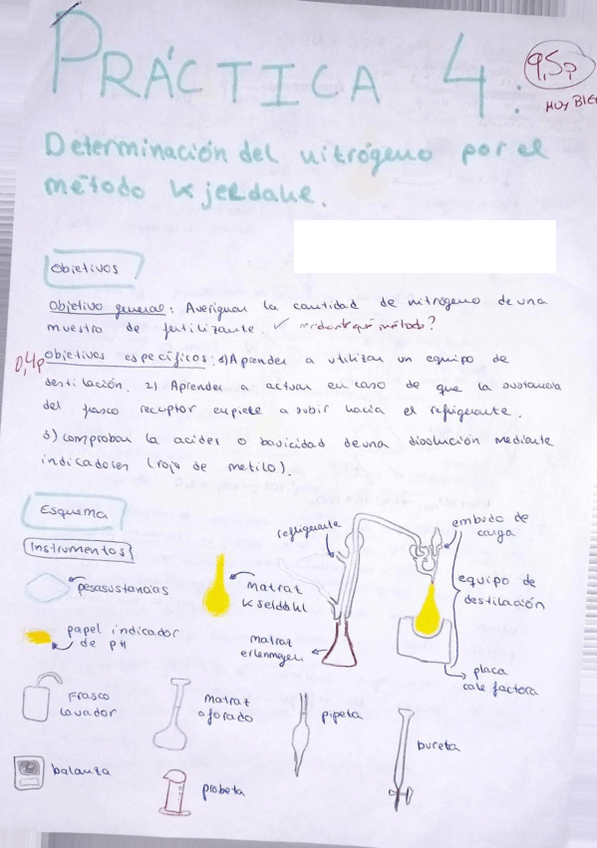 PRÁCTICA 4.
9,5p
MUY BIEN
Determinación del nitrógeno por el
método Kjeldahl.
Objetivos
Objetivo general: Averiguar la cantidad de nitrógeno de una
muestra de fertilizante. ✓ mediante qué método?
0,4p
Objetivos específicos: 1) Aprender a utilizar un equipo de
destilación. 2) Aprender a actuar en caso de que la sustancia
del frasco receptor empiece a subir hacia el refrigerante.
3) comprobar la acidez o basicidad de una disolución mediante
indicadores (rojo de metilo).
Esquema
Instrumentos
refrigerante
embudo de
carga
pesasustancias
matraz
Kjeldahl
equipo de
destilación
papel indicador
de pH
matraz
erlenmeyer
placa
calefactora
Frasco
lavador
matraz
aforado
pipeta
bureta
balanza
probeta